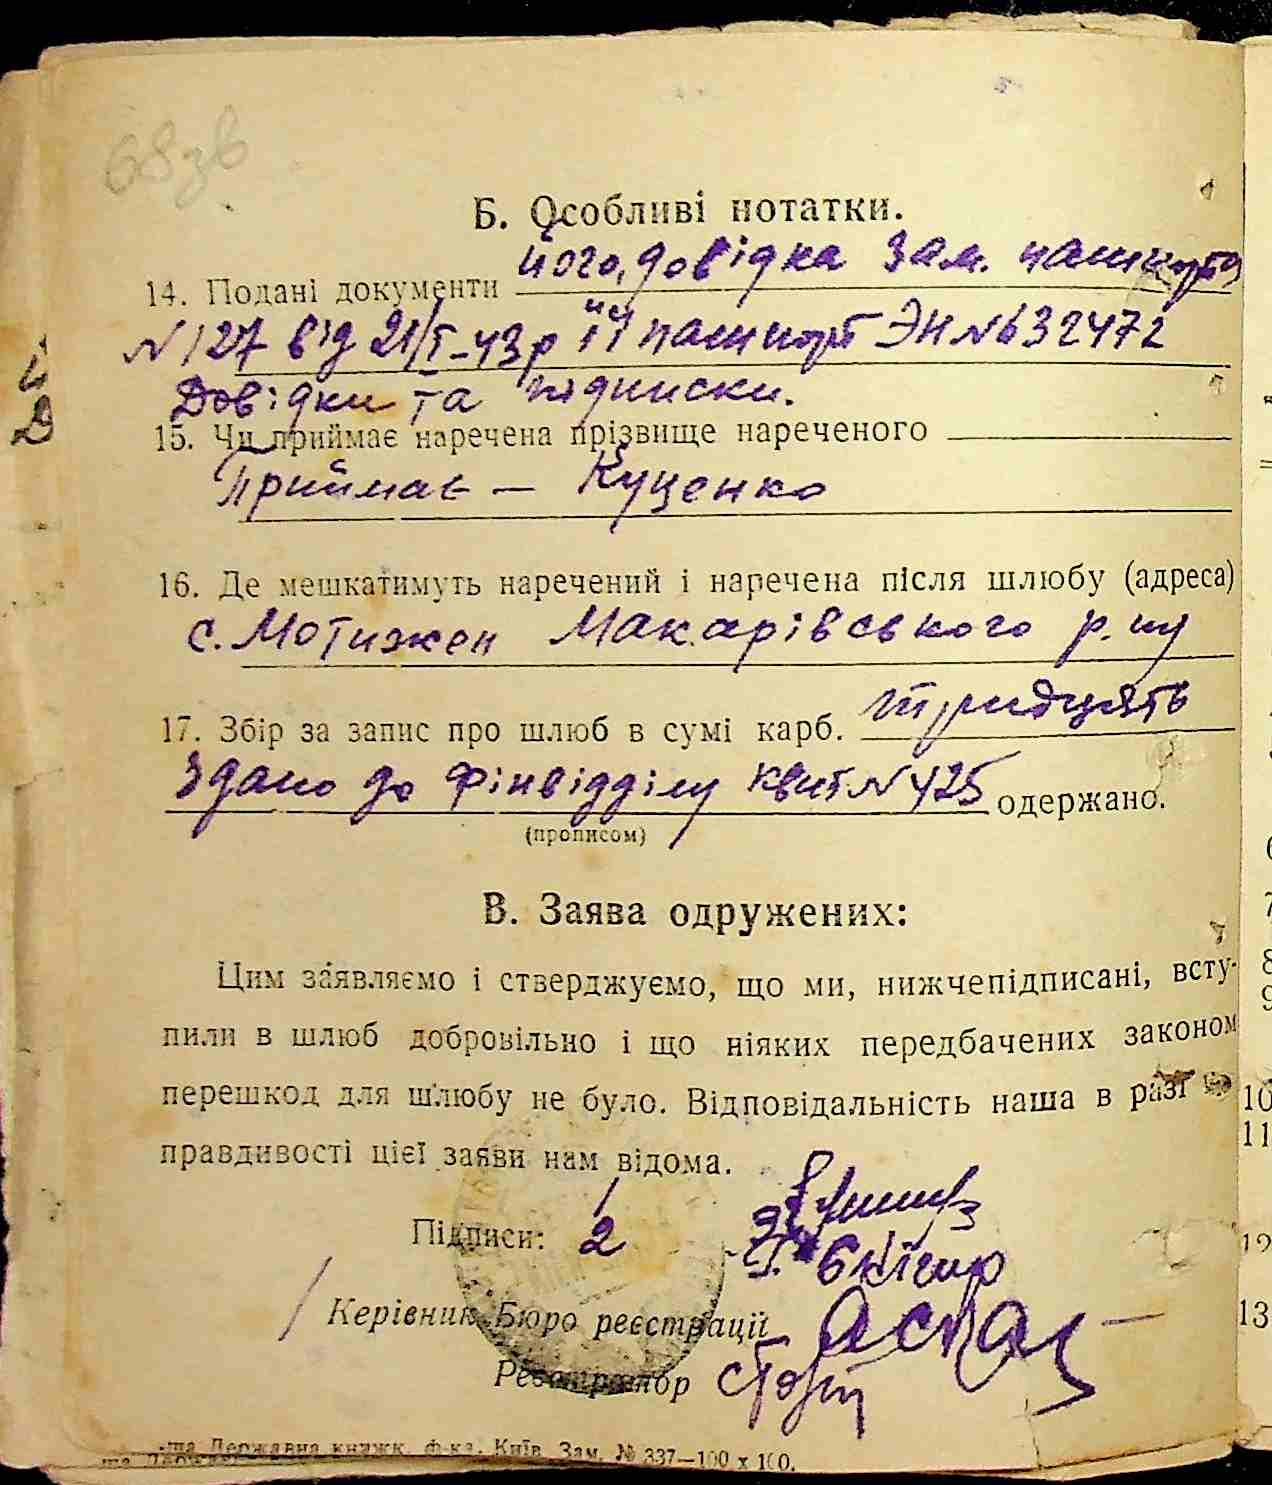 68зв
Б. Особливі нотатки.
14. Подані документи його, довідка зам. пашпорта
N 127 від 21/I-43р її пашпорт ЭН N 632472
Довідки та підписки.
15. Чи приймає наречена прізвище нареченого
Приймає — Куценко
16. Де мешкатимуть наречений і наречена після шлюбу (адреса)
с. Мотижен Макарівського р.ну
17. Збір за запис про шлюб в сумі карб. тридцять
Здано до Фінвідділу квит N 425 одержано.
(прописом)
В. Заява одружених:
Цим заявляємо і стверджуємо, що ми, нижчепідписані, всту-
пили в шлюб добровільно і що ніяких передбачених законом
перешкод для шлюбу не було. Відповідальність наша в разі не
правдивості цієї заяви нам відома.
Підписи: 1
2
Керівник Бюро реєстрації
Реєстратор
-ша Державна книжк. ф-ка. Київ. Зам. № 337—100 х 100.